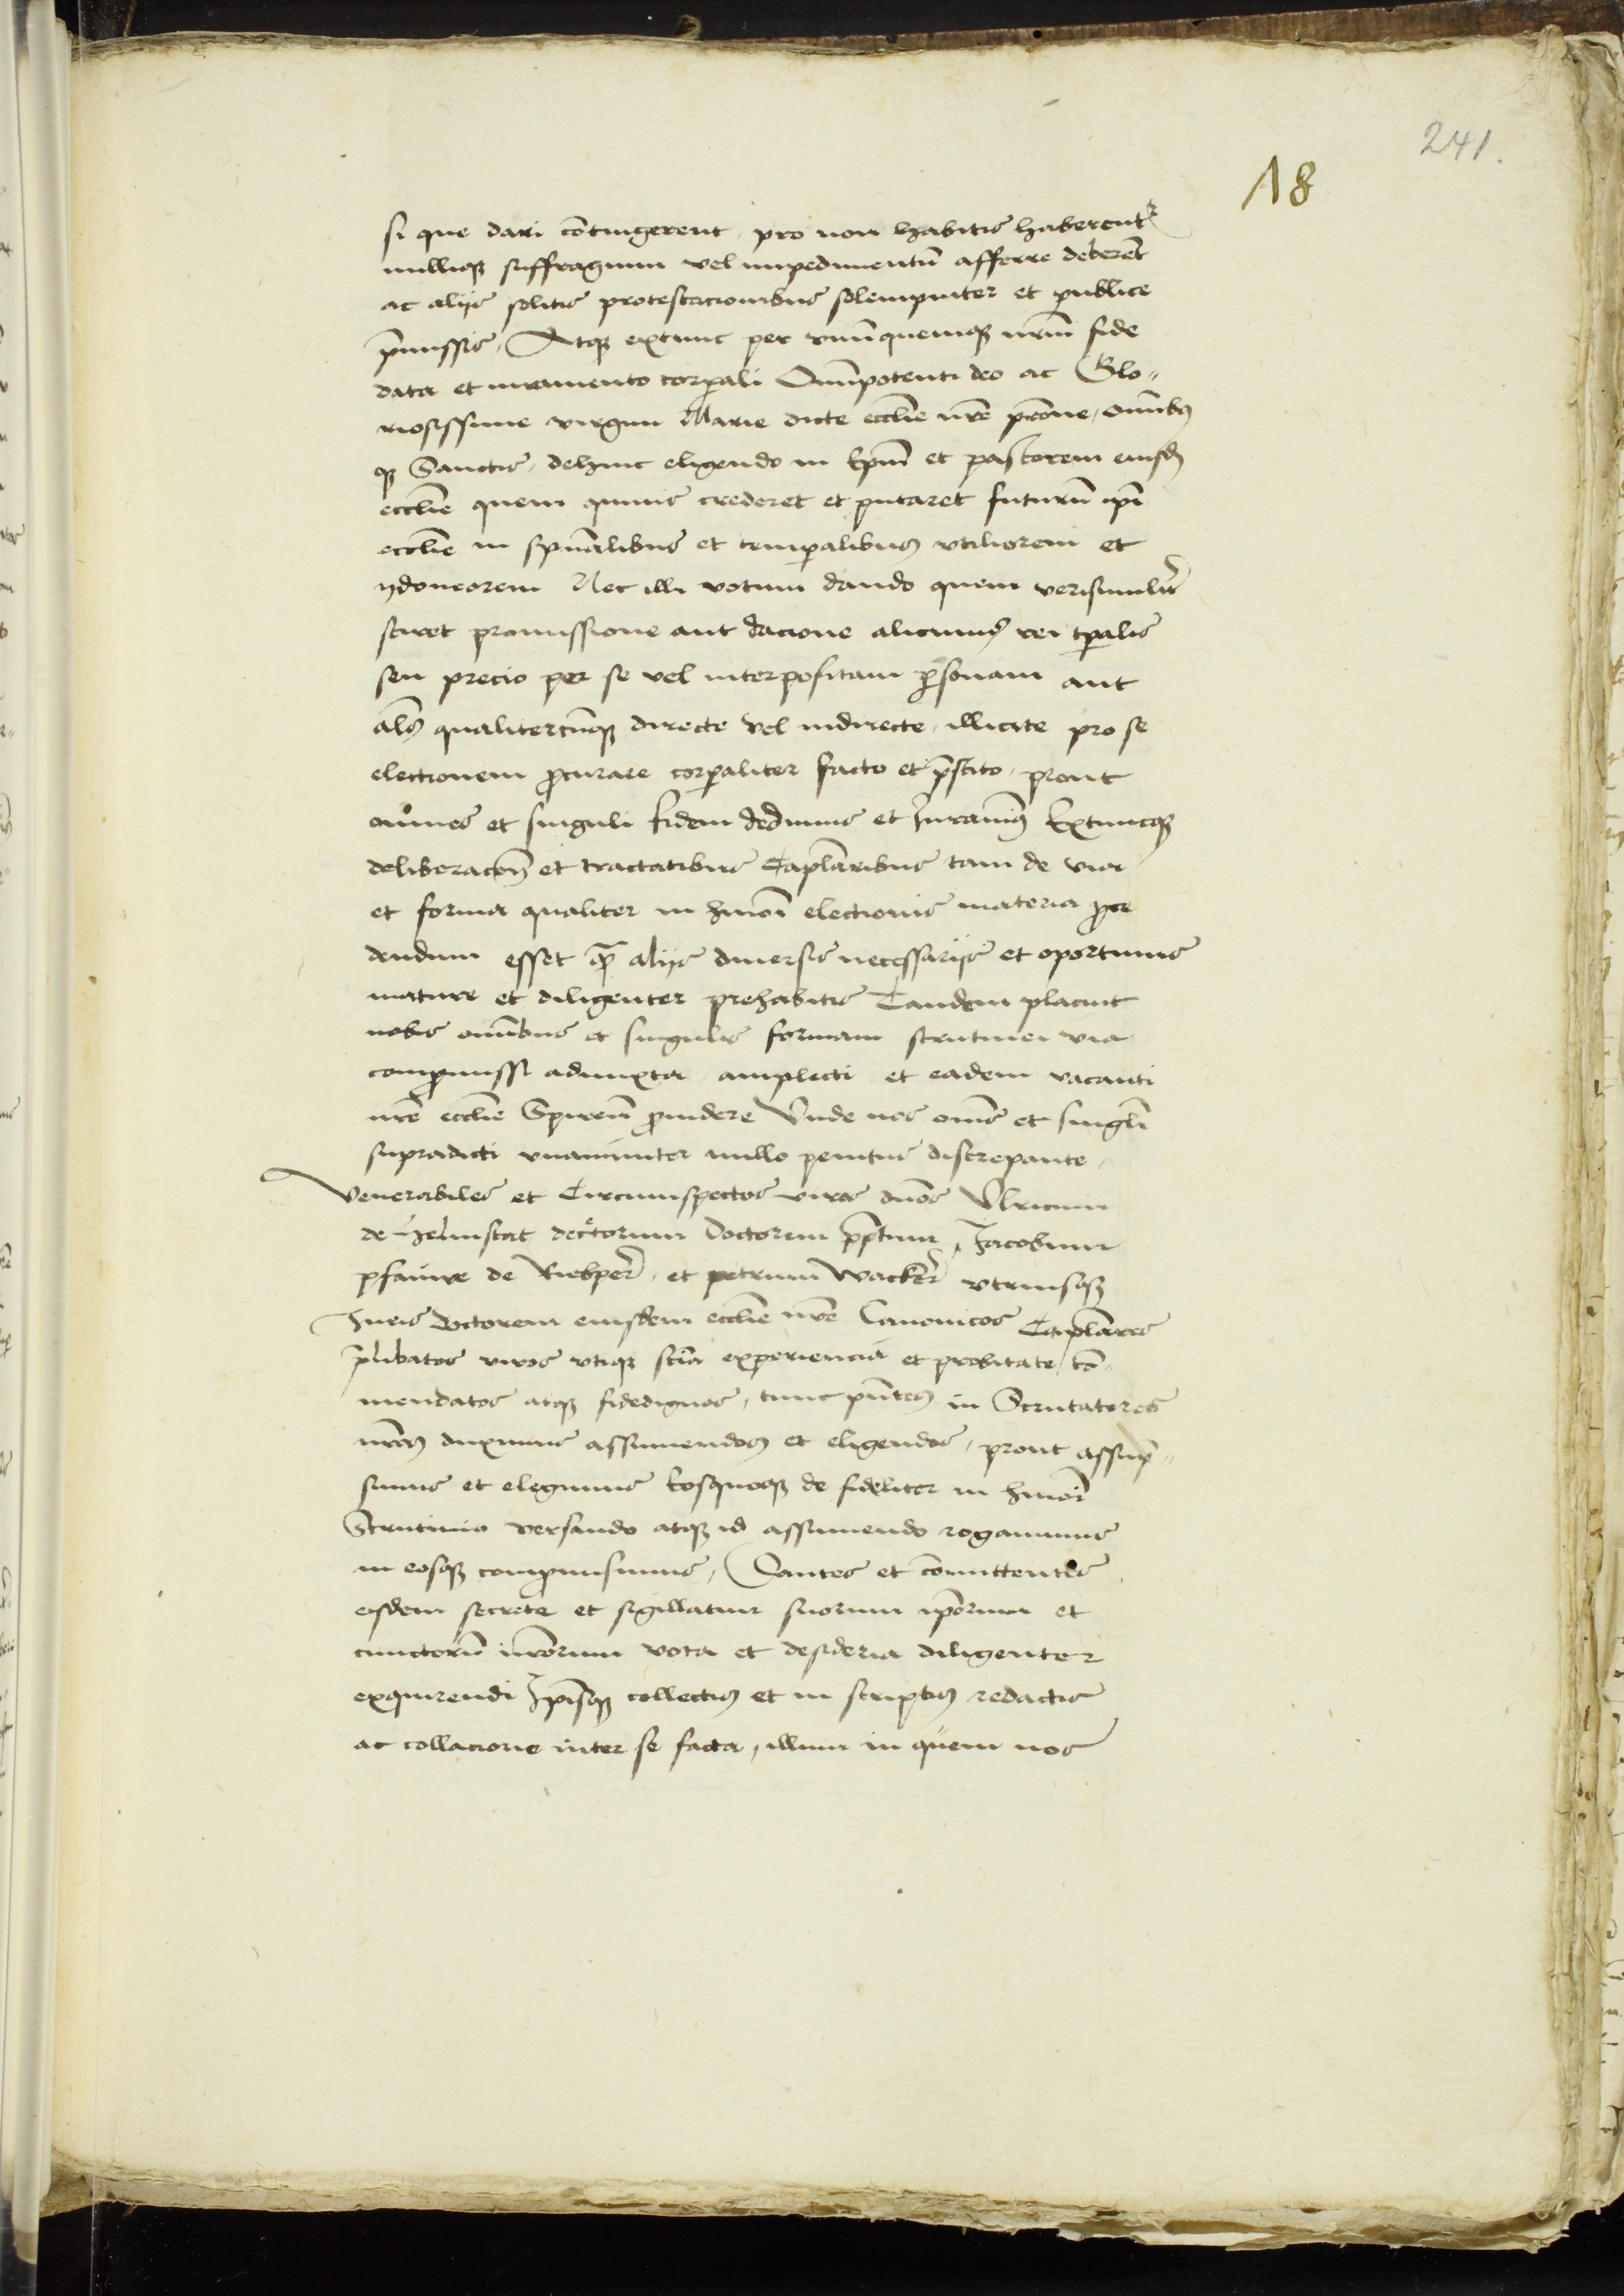 241.
18
si que dari cōtingerent, pro non habitis haberentr
nulliqȝ suffragium vel impedimentū afferre deberēt
ac alijs solitis protestacionibus solempniter et publice
p̄missis, Atqȝ extunc per vnūquemqȝ nr̄m fide
data et iuramento corꝑali Om̄ipotenti deo ac Glo„
riosissime virgini Marie dicte eccl̄ie nr̄e pr̄one, om̄ibꝯ
qȝ Sanctis, dehinc eligendo in Ep̄m et pastorem eiusd̄
eccl̄ie quem quiuis crederet et putaret futurū ip̄i
eccl̄ie in sp̄ualibus et temꝑalibus vtiliorem et
ydoneorem Nec illi votum dando quem verisimilit̄
sciret promissione aut dacione alicuiuꝯ rei tꝑalis
seu precio per se vel interpositam ꝑsonam aut
al̄s qualitercūqȝ directe vel indirecte, illicite pro se
electionem ꝓcurare corꝑaliter facto et p̄stito, prout
om̄es et singuli fidem dedimus et Iurauimꝯ Extuncqȝ
deliberacōn̄ et tractatibus Capl̄aribus tam de via
et forma qualiter in hmōi electionis materia ꝓce
dendum esset qꝫ alijs diuersis necessarijs et oportunis
mature et diligenter prehabitis Tandem placuit
nobis om̄ibus et singulis formam scrutinei via
comꝓmissi adiuncta, amplecti et eadem vacanti
nr̄e eccl̄ie Spiren̄ ꝓuidere Vnde nos om̄s et singl̄i
supradicti vnanimiter nullo penitus discrepante,
Venerabiles et Circumspectos viros dn̄os Vlricum
de Helmstat decr̄torum Doctorem pp̄tum, Jacobum
pfawe de Rietper̄, et petrum Wacker̄ vtriusqȝ
Iuris Doctorem eiusdem eccl̄ie nr̄e Canonicos Capl̄ares
p̄libatos viros vtiqȝ sciā experiencia et probitate cō„
mendatos atqȝ fidedignos, tunc pn̄tes in Scrutatores
nr̄os duximus assumendos et eligendos, prout assup̄„
simus et elegimus Eosquoqȝ de fideliter in hmōi
Scrutinio versando atqȝ id assumendo rogauimus
in eosqȝ compromisimus, Dantes et cōmittentes
eisdem secrete et sigillatim suorum ip̄orum et
cunctorū nr̄orum vota et desideria diligenter
exquirendi Ip̄isqȝ collectis et in scriptis redactis
ac collacione inter se facta, illum in quem nos